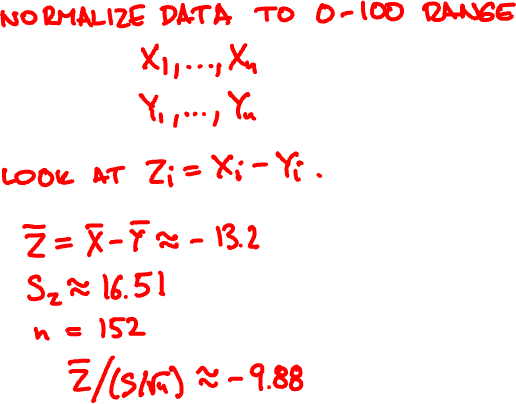 NORMALIZE DATA TO 0-100 RANGE
X₁,...,Xₙ
Y₁,...,Yₙ
LOOK AT Zᵢ = Xᵢ - Yᵢ.
Z̅ = X̅ - Y̅ ≈ -13.2
S_z ≈ 16.51
n = 152
Z̅/(S/√n) ≈ -9.88